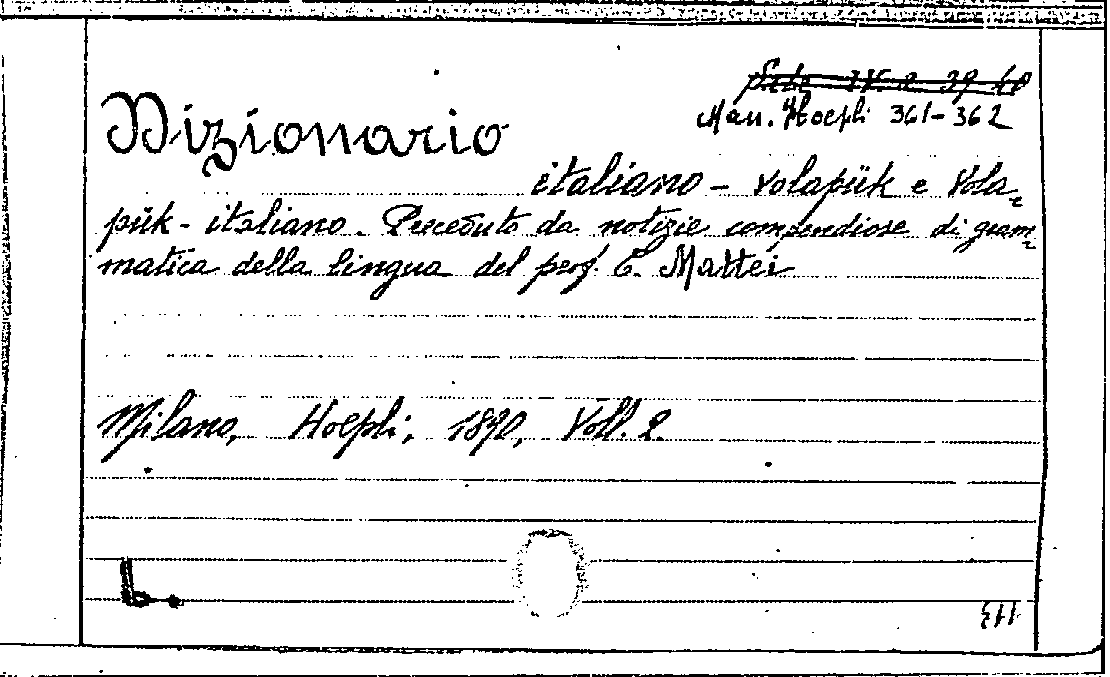 Man. Hoepli 361-362
Dizionario
italiano - Volapük e Vola-
pük - italiano. Preceduto da notizie compendiose di gram-
matica della lingua del prof. C. Mattei
Milano, Hoepli, 1890, Voll. 2.